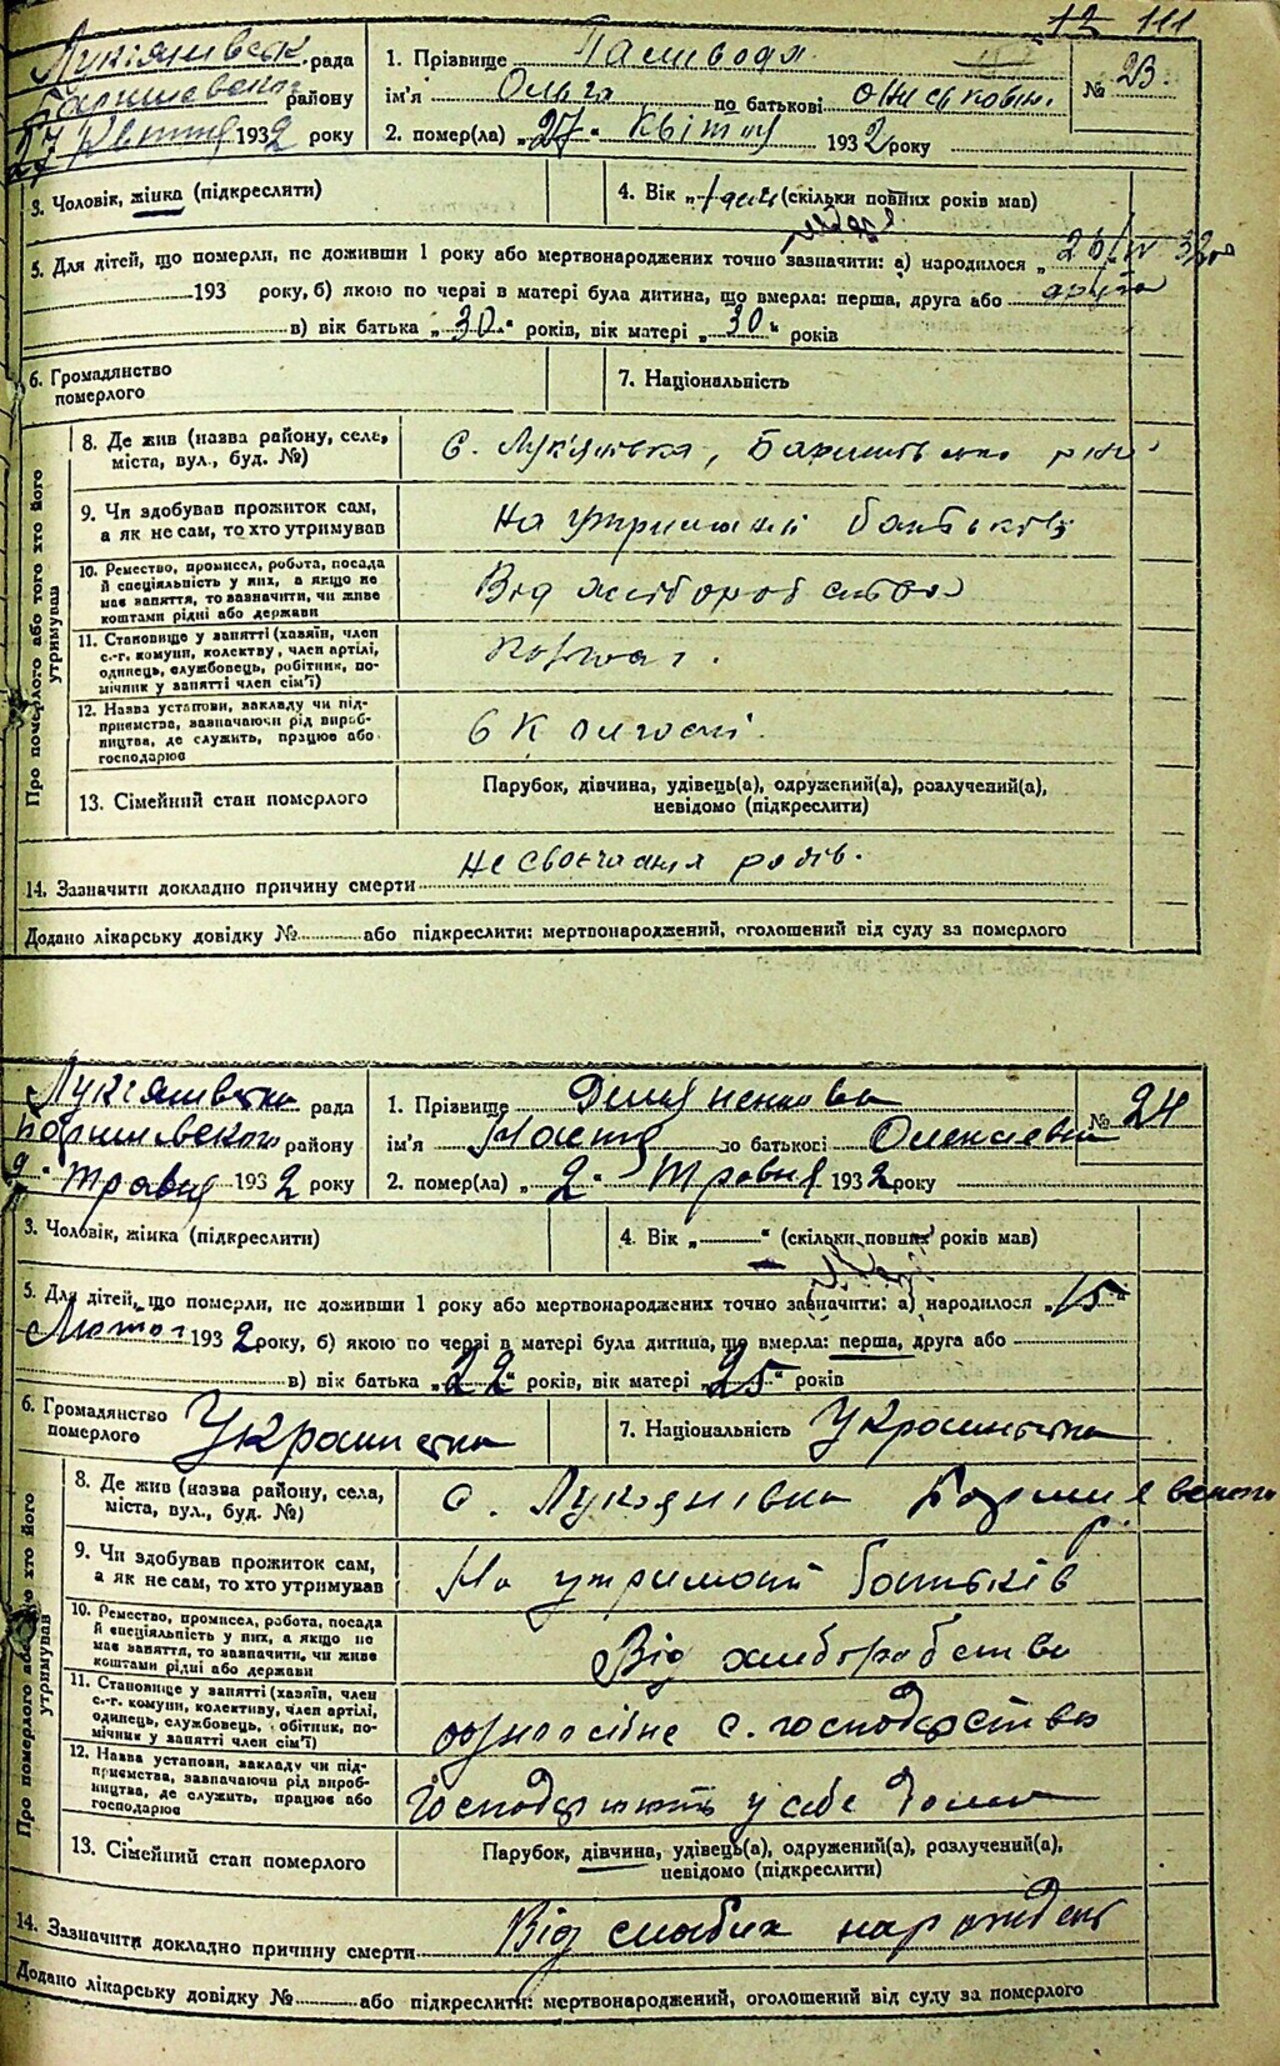 12 111
Лукіянівськ. рада
Баришевськ. району
27 Квітня 1932 року
1. Прізвище Паливода
ім'я Ольга по батькові Ониськовн.
№ 23.
2. помер(ла) „27" Квітня 1932 року
3. Чоловік, жінка (підкреслити)
4. Вік „1 день (скільки повних років мав)
5. Для дітей, що померли, не доживши 1 року або мертвонароджених точно зазначити: а) народилося „26/IV 32
193 року, б) якою по черзі в матері була дитина, що вмерла: перша, друга або друга
в) вік батька „30" років, вік матері „30" років
6. Громадянство
померлого
7. Національність
Про померлого або того хто його
утримував
8. Де жив (назва району, села,
міста, вул., буд. №)
С. Лук'янівка, Баришевськ
9. Чи здобував прожиток сам,
а як не сам, то хто утримував
На утриманні батьків
10. Ремество, промисел, робота, посада
й спеціяльність у них, а якщо не
має заняття, то зазначити, чи живе
коштами рідні або держави
Від хліборобства
11. Становище у занятті (хазяїн, член
с.-г. комуни, колективу, член артілі,
одинець, службовець, робітник, по-
мічник у занятті член сім'ї)
12. Назва установи, закладу чи під-
приємства, зазначаючи рід вироб-
ництва, де служить, працює або
господарює
13. Сімейний стан померлого
Парубок, дівчина, удівець(а), одружений(а), розлучений(а),
невідомо (підкреслити)
14. Зазначити докладно причину смерти Не свочасния родів.
Додано лікарську довідку № або підкреслити: мертвонароджений, оголошений від суду за померлого
Лукіянівська рада
Баришевського району
9 травня 1932 року
1. Прізвище Демяненкова
ім'я Настя по батькові Олексіевна
№ 24
2. помер(ла) „2" Травня 1932 року
3. Чоловік, жінка (підкреслити)
4. Вік „—" (скільки повних років мав)
5. Для дітей, що померли, не доживши 1 року або мертвонароджених точно зазначити: а) народилося „15"
Лютого 1932 року, б) якою по черзі в матері була дитина, що вмерла: перша, друга або
в) вік батька „22" років, вік матері „25" років
6. Громадянство
померлого
Украинська
7. Національність Украинська
Про померлого або того хто його
утримував
8. Де жив (назва району, села,
міста, вул., буд. №)
С. Лукянівка Баришевського
р.
9. Чи здобував прожиток сам,
а як не сам, то хто утримував
На утриманні батьків
10. Ремество, промисел, робота, посада
й спеціяльність у них, а якщо не
має заняття, то зазначити, чи живе
коштами рідні або держави
Від хліборобства
11. Становище у занятті (хазяїн, член
с.-г. комуни, колективу, член артілі,
одинець, службовець, робітник, по-
мічник у занятті член сім'ї)
одноосібне с. господарство
12. Назва установи, закладу чи під-
приємства, зазначаючи рід вироб-
ництва, де служить, працює або
господарює
Господарюють у себе дома
13. Сімейний стан померлого
Парубок, дівчина, удівець(а), одружений(а), розлучений(а),
невідомо (підкреслити)
14. Зазначити докладно причину смерти Від слабих народжень
Додано лікарську довідку № або підкреслити: мертвонароджений, оголошений від суду за померлого